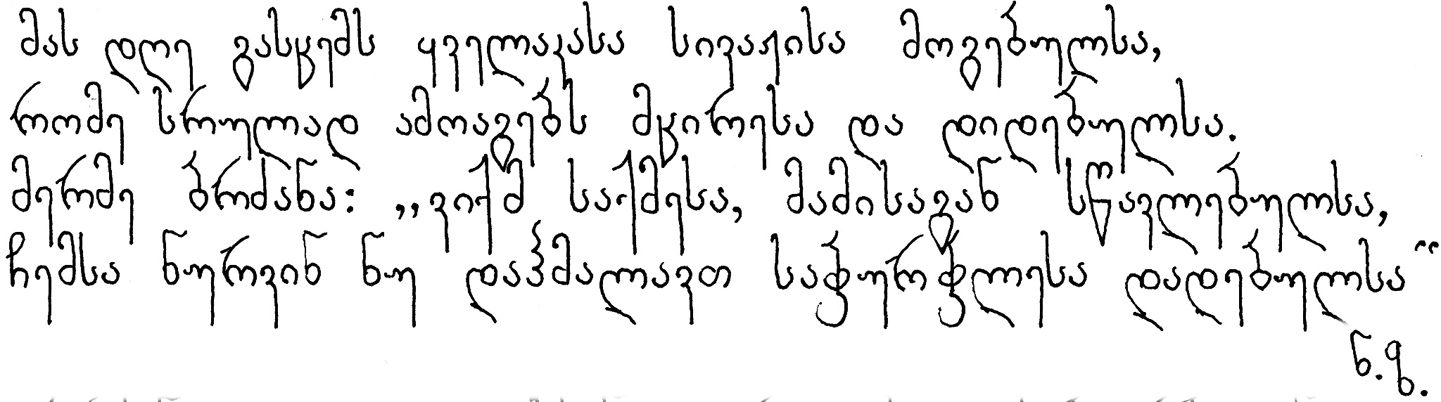 მას დღე გასცემს ყველაკასა სივაჟისა მოგებულსა,
რომე სრულად ამოაგებს მცირესა და დიდებულსა.
მერმე ბრძანა: „ვიქმ საქმესა, მამისაგან სწავლებულსა,
ჩემსა ნურვინ ნუ დაჰმალავთ საჭურჭლესა დადებულსა“
ნ.ფ.